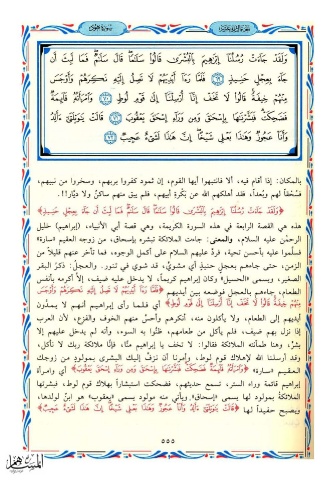 وَلَقَدْ جَاءَتْ رُسُلُنَا إِبْرَاهِيمَ بِالْبُشْرَى قَالُوا سَلَامًا قَالَ سَلَامٌ فَمَا لَبِثَ أَن
جَاءَ بِعِجْلٍ حَنِيذٍ ﴿٦٩﴾ فَلَمَّا رَأَى أَيْدِيَهُمْ لَا تَصِلُ إِلَيْهِ نَكِرَهُمْ وَأَوْجَسَ
مِنْهُمْ خِيفَةً قَالُوا لَا تَخَفْ إِنَّا أُرْسِلْنَا إِلَى قَوْمِ لُوطٍ ﴿٧٠﴾ وَامْرَأَتُهُ قَائِمَةٌ
فَضَحِكَتْ فَبَشَّرْنَاهَا بِإِسْحَاقَ وَمِن وَرَاءِ إِسْحَاقَ يَعْقُوبَ ﴿٧١﴾ قَالَتْ يَا وَيْلَتَى ءَأَلِدُ
وَأَنَا عَجُوزٌ وَهَذَا بَعْلِي شَيْخًا إِنَّ هَذَا لَشَيْءٌ عَجِيبٌ ﴿٧٢﴾
بالمكان: إذا أقام فيه، ألا فانتبهوا أيها القوم، إن ثمود كفروا بربهم، وسخروا من نبيهم،
فسُحْقاً لهم وبُعداً، فقد أهلكهم الله عن بَكْرة أبيهم، فلم يبق منهم ساكنٌ ولا ديَّار!!.
﴿وَلَقَدْ جَاءَتْ رُسُلُنَا إِبْرَاهِيمَ بِالْبُشْرَى قَالُوا سَلَامًا قَالَ سَلَامٌ فَمَا لَبِثَ أَن جَاءَ بِعِجْلٍ حَنِيذٍ﴾
هذه هي القصة الرابعة في هذه السورة الكريمة، وهي قصة أبي الأنبياء، (إبراهيم) خليل
الرحمٰن عليه السلام، والمعنى: جاءت الملائكة تبشره بإسحاق، من زوجه العقيم «سارة»
فسلَّموا عليه بأحسن تحية، فردَّ عليهم السلام على أكمل الوجوه، فما تأخر عنهم قليلاً من
الزمن، حتى جاءهم بعجلٍ حنيذٍ أي مشويٍّ، قد شوي في تنور. والعجلُ: ذكرُ البقر
الصغير، ويسمى «الحسيل» وكان إبراهيم كريماً، لا يدخل عليه ضيف، إلا أكرمه بأنفس
الطعام، جاءهم بالعجل فوضعه بين أيديهم ﴿فَلَمَّا رَأَى أَيْدِيَهُمْ لَا تَصِلُ إِلَيْهِ نَكِرَهُمْ وَأَوْجَسَ
مِنْهُمْ خِيفَةً قَالُوا لَا تَخَفْ إِنَّا أُرْسِلْنَا إِلَى قَوْمِ لُوطٍ﴾ أي فلما رأى إبراهيم أنهم لا يمدُّون
أيديهم إلى الطعام، ولا يأكلون منه، أنكرهم وأحسَّ منهم الخوف والفزع، لأن العرب
إذا نزل بهم ضيف، فلم يأكل من طعامهم، ظنُّوا به السوء، وأنه لم يدخل عليهم إلا
بشرٍّ، وهنا طمأنته الملائكة فقالوا: لا تخف يا إبراهيم منَّا، فإنَّا ملائكة ربك لا نأكل،
وقد أرسلنا الله لإهلاك قوم لوط، وأمرنا أن نزفَّ إليك البشرى بمولودٍ من زوجك
العقيم «سارة» ﴿وَامْرَأَتُهُ قَائِمَةٌ فَضَحِكَتْ فَبَشَّرْنَاهَا بِإِسْحَاقَ وَمِن وَرَاءِ إِسْحَاقَ يَعْقُوبَ﴾ أي وامرأة
إبراهيم قائمة وراء الستر، تسمع حديثهم، فضحكت استبشاراً بهلاك قوم لوط، فبشرتها
الملائكة بمولود لها يسمى «إسحاق» ويأتي منه مولود يسمى «يعقوب» هو ابنٌ لولدها،
ويصبح حفيداً لها ﴿قَالَتْ يَا وَيْلَتَى ءَأَلِدُ وَأَنَا عَجُوزٌ وَهَذَا بَعْلِي شَيْخًا إِنَّ هَذَا لَشَيْءٌ عَجِيبٌ﴾
٥٥٥